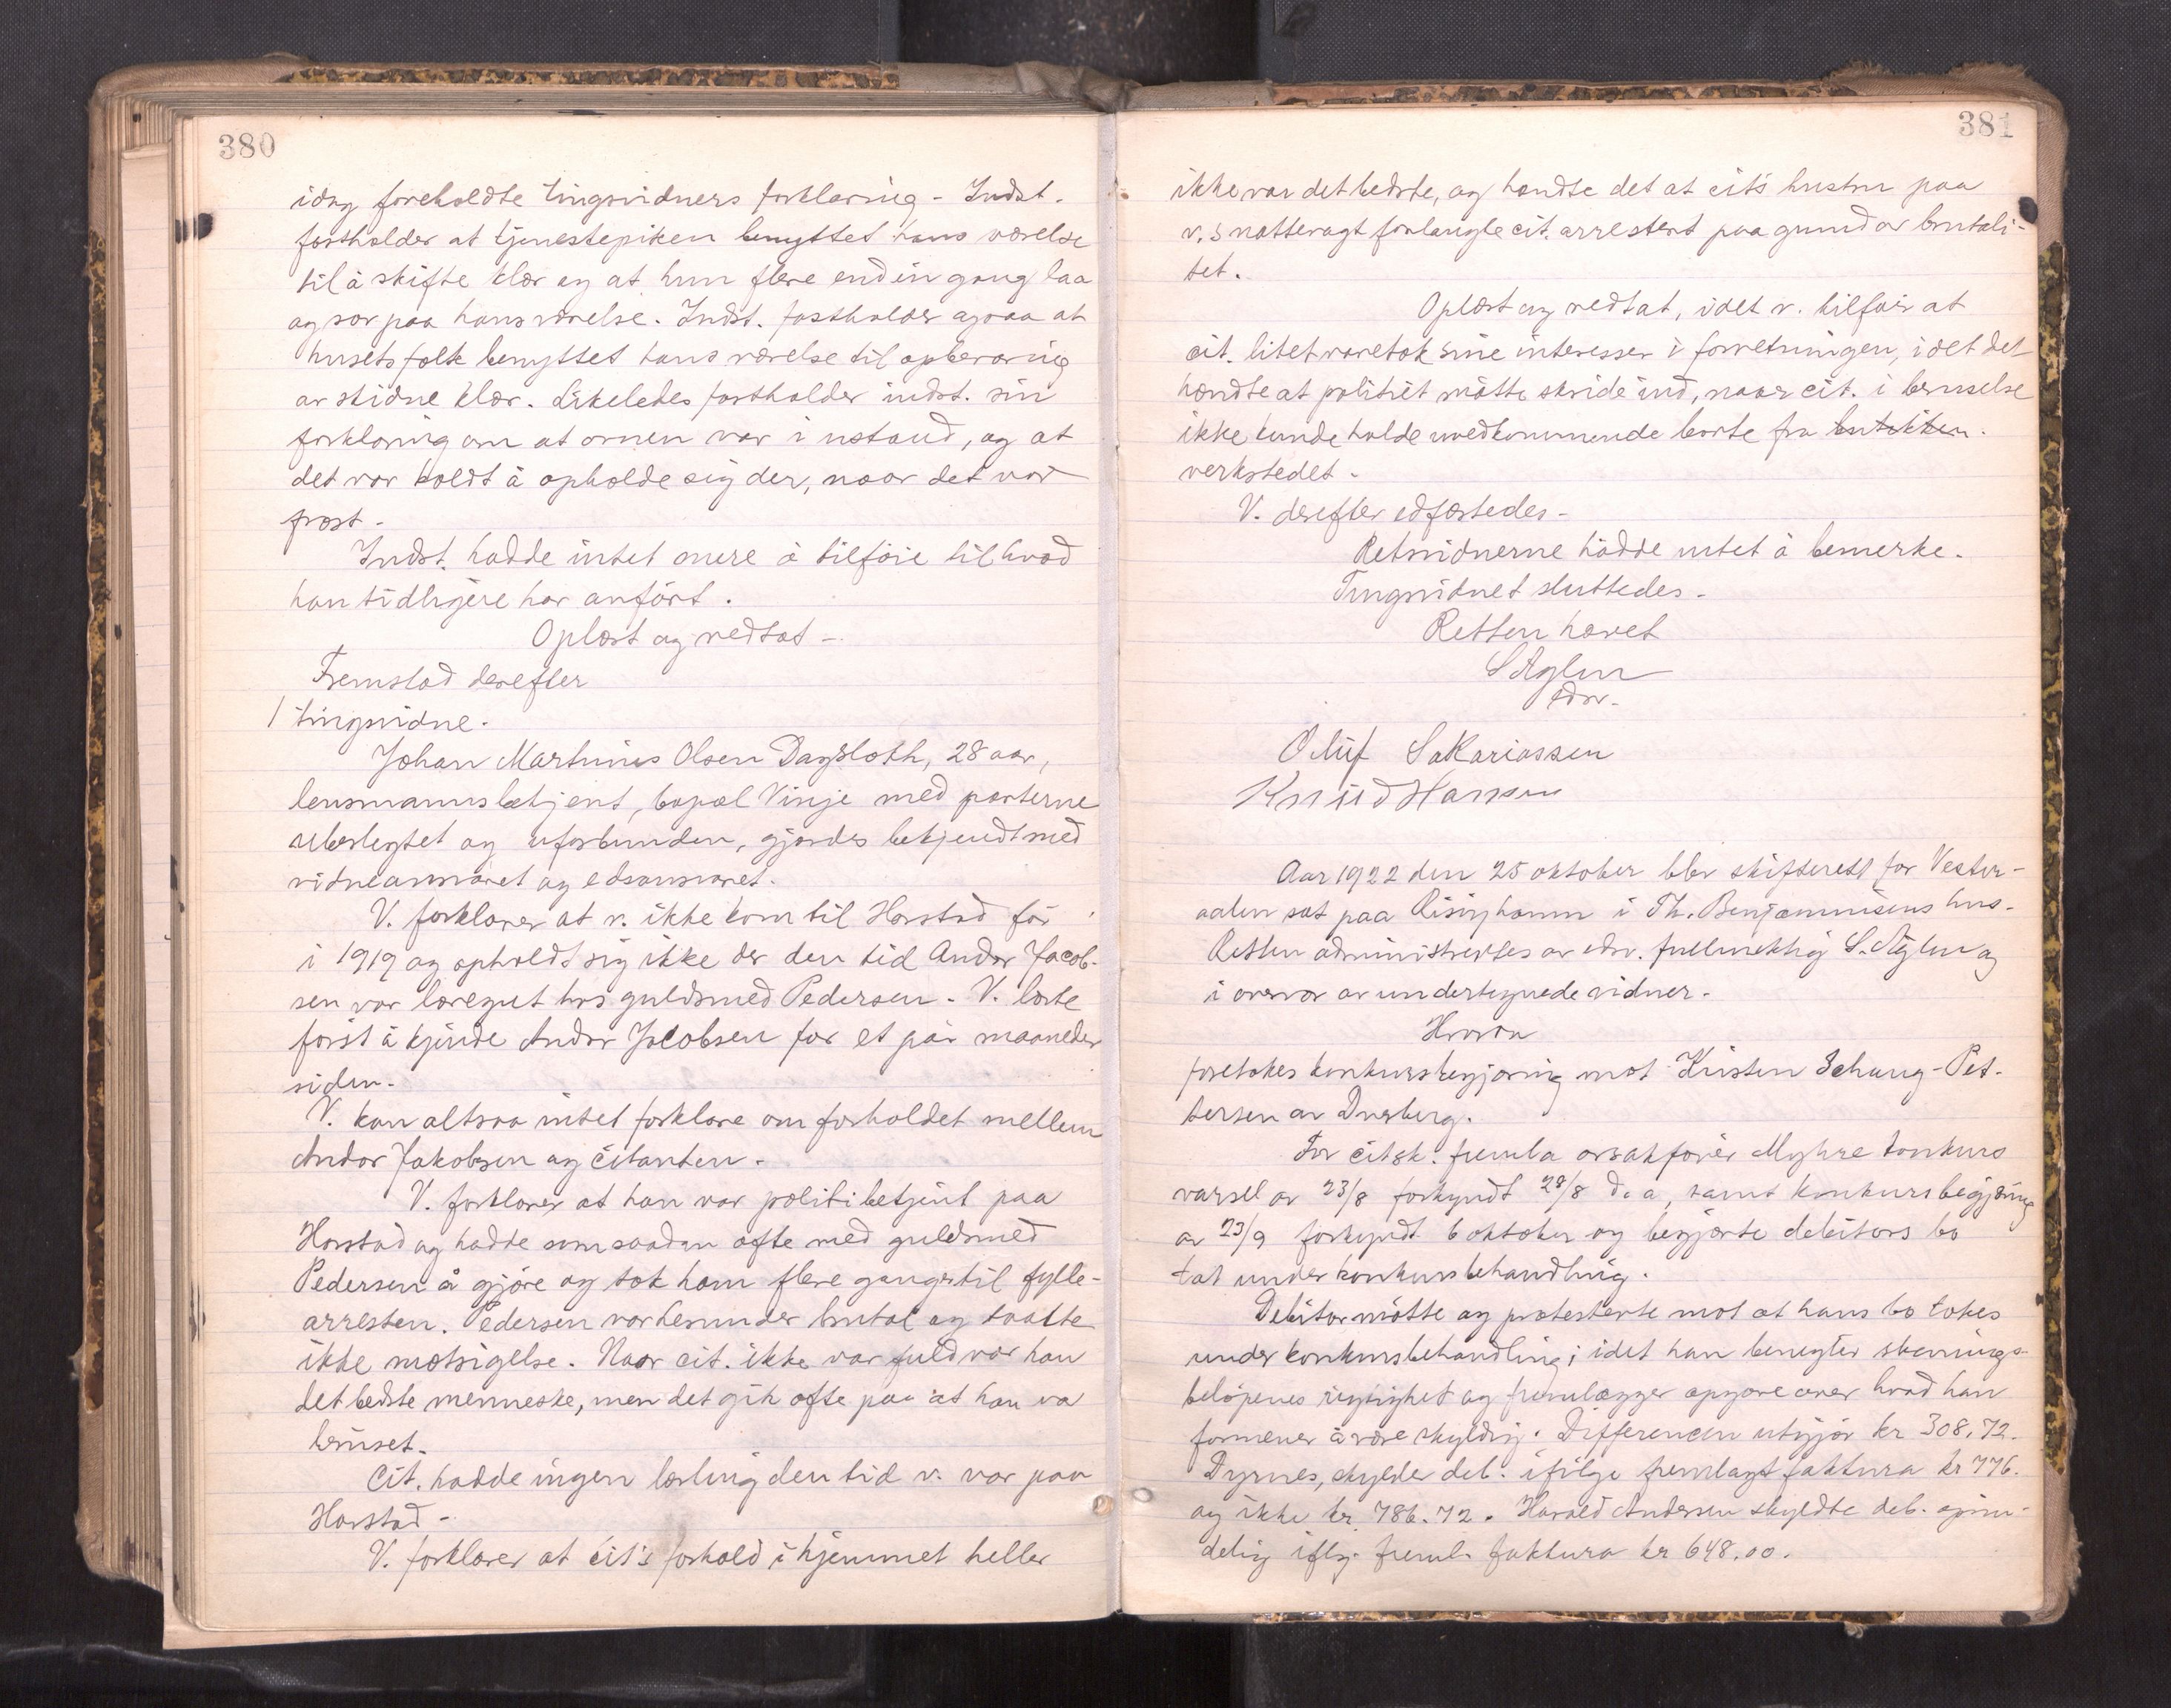 380
idag foreholdte tingsvidners forklaring - Indst.
fastholder at tjenestepiken benyttet hans værelse
til å skifte klær og at hun flere end en gang laa
og sov paa hans værelse. Indst. fastholder ogsaa at
husets folk benyttet hans værelse til opbevaring
av skidne klær. Likeledes fastholder indst. sin
forklaring om at ovnen var i ustand, og at
det var koldt å opholde sig der, naar det var
frost -
Indst. hadde intet mere å tilføie til hvad
han tidligere har anført.
Oplæst og vedtat -
Fremstod derefter
1 tingsvidne.
Johan Martinus Olsen Dagsloth, 28 aar,
lensmannsbetjent, bopæl Vinje med parterne
ubeslegtet og uforbunden, gjordes bekjendt med
vidneansvaret og edsansvaret.
V. forklarer at v. ikke kom til Harstad før
i 1919 og opholdt sig ikke der den tid Andor Jacob-
sen var læregut hos guldsmed Pedersen - V. lærte
først å kjende Andor Jacobsen for et par maaneder
siden.
V. kan altsaa intet forklare om forholdet mellem
Andor Jakobsen og citanten.
V. forklarer at han var politibetjent paa
Harstad og hadde som saadan ofte med guldsmed
Pedersen å gjøre og tok ham flere ganger til fylle-
arresten. Pedersen var herunder brutal og taalte
ikke motsigelse. Naar cit. ikke var fuld var han
det bedste menneske, men det gik ofte paa at han va
beruset.
Cit. hadde ingen lærling den tid v. var paa
Harstad -
V. forklarer at cit's forhold i hjemmet heller
381
ikke var det bedste, og hændte det at cit's hustru paa
v.s nattevagt forlangte cit. arrestert paa grund av brutali-
tet.
Oplæst og vedtat, idet v. tilføier at
cit. litet varetok sine interesser i forretningen, idet det
hændte at politiet måtte skride ind, naar cit. i beruselse
ikke kunde holde uvedkommende borte fra butikken.
verkstedet.
V. derefter edfæstedes -
Retsvidnerne hadde intet å bemerke.
Tingsvidnet sluttedes -
Retten hævet
S Aglen
edsv.
Oluf Sakariassen
Knud Hansen
Aar 1922 den 25 oktober blev skifterett for Vester-
aalen sat paa Risøyhamn i Th. Benjaminsens hus.
Retten administrertes av edsv. fullmektig S. Aglen og
i overvær av undertegnede vidner.
Hvorva
foretokes konkursbegjæring mot Kristen Schang-Pet-
tersen av Dverberg.
For citsk. fremla orsakfører Myhre konkurs
varsel av 23/8 forkyndt 28/8 d. a, samt konkursbegjæring
av 23/9 forkyndt 6 oktober og begjærte debitors bo
tat under konkursbehandling.
Debitor møtte og protesterte mot at hans bo tokes
under konkursbehandling; idet han benegter stevnings-
beløpenes rigtighet og fremlægger opgave over hvad han
formener å være skyldig. Differencen utgjør kr 308.72.
Dyrnes, skylder deb. ifølge fremlagt faktura kr 776.
og ikke kr. 786.72. Harald Andersen skyldte deb. oprin-
delig iflg. freml. faktura kr 648.00.